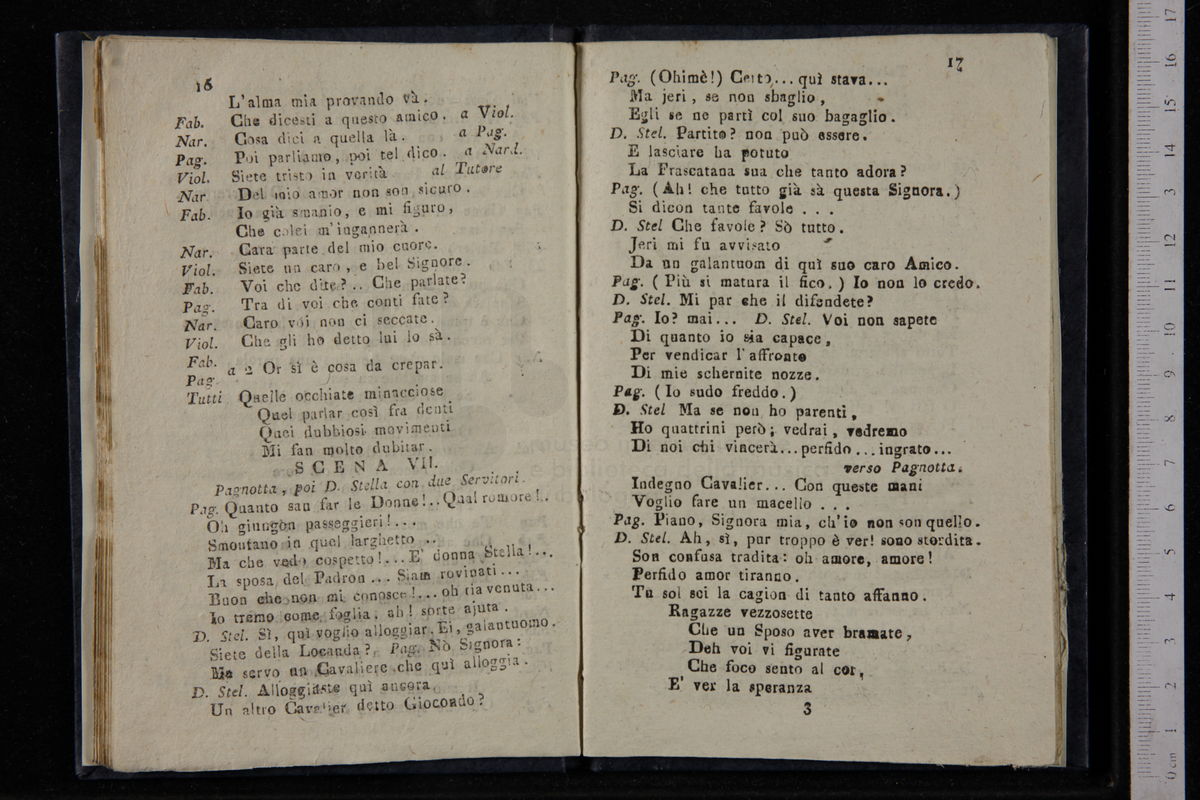 16
L'alma mia provando và.
Fab. Che dicesti a questo amico. a Viol.
Nar. Cosa dici a quella là. a Pag.
Pag. Poi parliamo, poi tel dico. a Nard.
Viol. Siete tristo in verità al Tutore
Nar Del mio amor non son sicuro.
Fab. Io già smanio, e mi figuro,
Che colei m'ingannerà.
Nar. Cara parte del mio cuore.
Viol. Siete un caro, e bel Signore.
Fab. Voi che dite?.. Che parlate?
Pag. Tra di voi che conti fate?
Nar. Caro voi non ci seccate.
Viol. Che gli ho detto lui lo sà.
Fab. a 2 Or sì è cosa da crepar.
Pag.
Tutti Quelle occhiate minacciose
Quel parlar così fra denti
Quei dubbiosi movimenti
Mi fan molto dubitar.
SCENA VII.
Pagnotta, poi D. Stella con due Servitori.
Pag. Quanto san far le Donne!..Qual romore!..
Oh giungon passeggieri!...
Smontano in quel larghetto ..
Ma che vedo cospetto!...E' donna Stella!...
La sposa del Padron... Siam rovinati...
Buon che non mi conosce!...oh ria venuta...
Io tremo come foglia, ah! sorte ajuta.
D. Stel. Sì, quì voglio alloggiar. Ei, galantuomo.
Siete della Locanda? Pag. Nò Signora:
Ma servo un Cavaliere che quì alloggia.
D. Stel. Alloggiaste quì ancora
Un altro Cavalier detto Giocondo?
17
Pag. (Ohimè!) Certo... quì stava...
Ma jeri, se non sbaglio,
Egli se ne partì col suo bagaglio.
D. Stel. Partito? non può essere.
E lasciare ha potuto
La Frascatana sua che tanto adora?
Pag. (Ah! che tutto già sà questa Signora.)
Si dicon tante favole ...
D. Stel Che favole? Sò tutto.
Jeri mi fu avvisato
Da un galantuom di quì suo caro Amico.
Pag. (Più si matura il fico.) Io non lo credo.
D. Stel. Mi par che il difendete?
Pag. Io? mai... D. Stel. Voi non sapete
Di quanto io sia capace,
Per vendicar l'affronto
Di mie schernite nozze.
Pag. (Io sudo freddo.)
D. Stel Ma se non ho parenti,
Ho quattrini però; vedrai, vedremo
Di noi chi vincerà...perfido...ingrato...
verso Pagnotta.
Indegno Cavalier... Con queste mani
Voglio fare un macello ...
Pag. Piano, Signora mia, ch'io non son quello.
D. Stel. Ah, sì, pur troppo è ver! sono stordita.
Son confusa tradita: oh amore, amore!
Perfido amor tiranno.
Tu sol sei la cagion di tanto affanno.
Ragazze vezzosette
Che un Sposo aver bramate,
Deh voi vi figurate
Che foco sento al cor,
E' ver la speranza
3